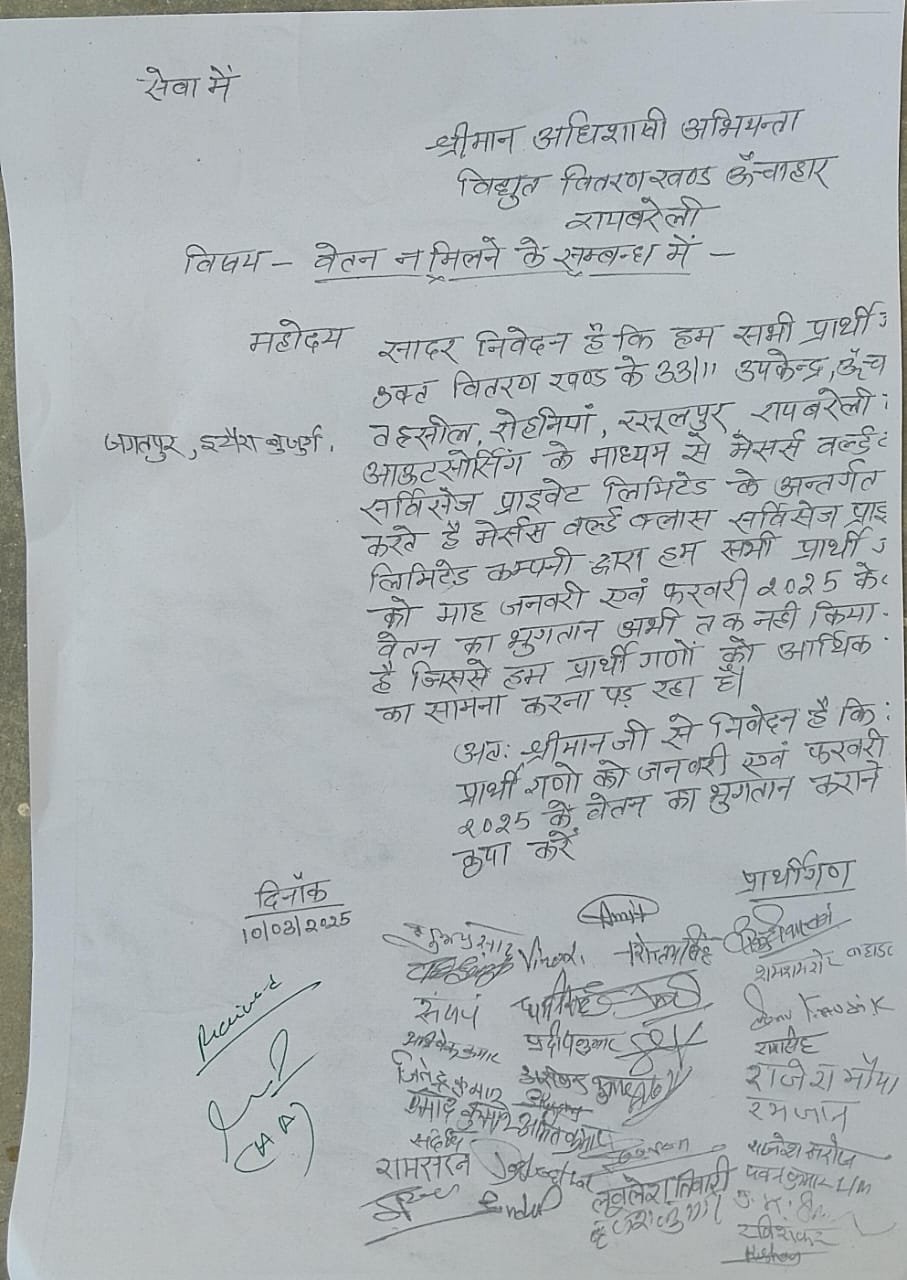 सेवा में
श्रीमान अधिशाषी अभियन्ता
विद्युत वितरण खण्ड ऊँचाहार
रायबरेली
विषय - वेतन न मिलने के सम्बन्ध में -
महोदय
सादर निवेदन है कि हम सभी प्रार्थी
उक्त वितरण खण्ड के 33/11 उपकेन्द्र, ऊँच
जगतपुर, इटौरा बुजुर्ग,
तहसील, रोहनियां, रसूलपुर, रायबरेली
आऊटसोर्सिंग के माध्यम से मेसर्स वर्ल्ड
सर्विसेज प्राइवेट लिमिटेड के अन्तर्गत
करते है मेर्सस वर्ल्ड क्लास सर्विसेज प्राइ
लिमिटेड कम्पनी द्वारा हम सभी प्रार्थी
को माह जनवरी एवं फरवरी 2025 के
वेतन का भुगतान अभी तक नही किया
है जिससे हम प्रार्थी गणों को आर्थिक
का सामना करना पड़ रहा है।
अतः श्रीमान जी से निवेदन है कि
प्रार्थी गणो को जनवरी एवं फरवरी
2025 के वेतन का भुगतान कराने
कृपा करें
प्रार्थीगण
दिनाँक
10/03/2025
Amit
Vinod
संजय
प्रदीप कुमार
रामसिंह
जितेन्द्र कुमार
राजेश मौर्या
रमजान
प्रमोद कुमार अमित कुमार
संदीप
राजेश सरोज
रामसरन
लवलेश तिवारी
पवन कुमार L/M
रविशंकर
Received
(AA)